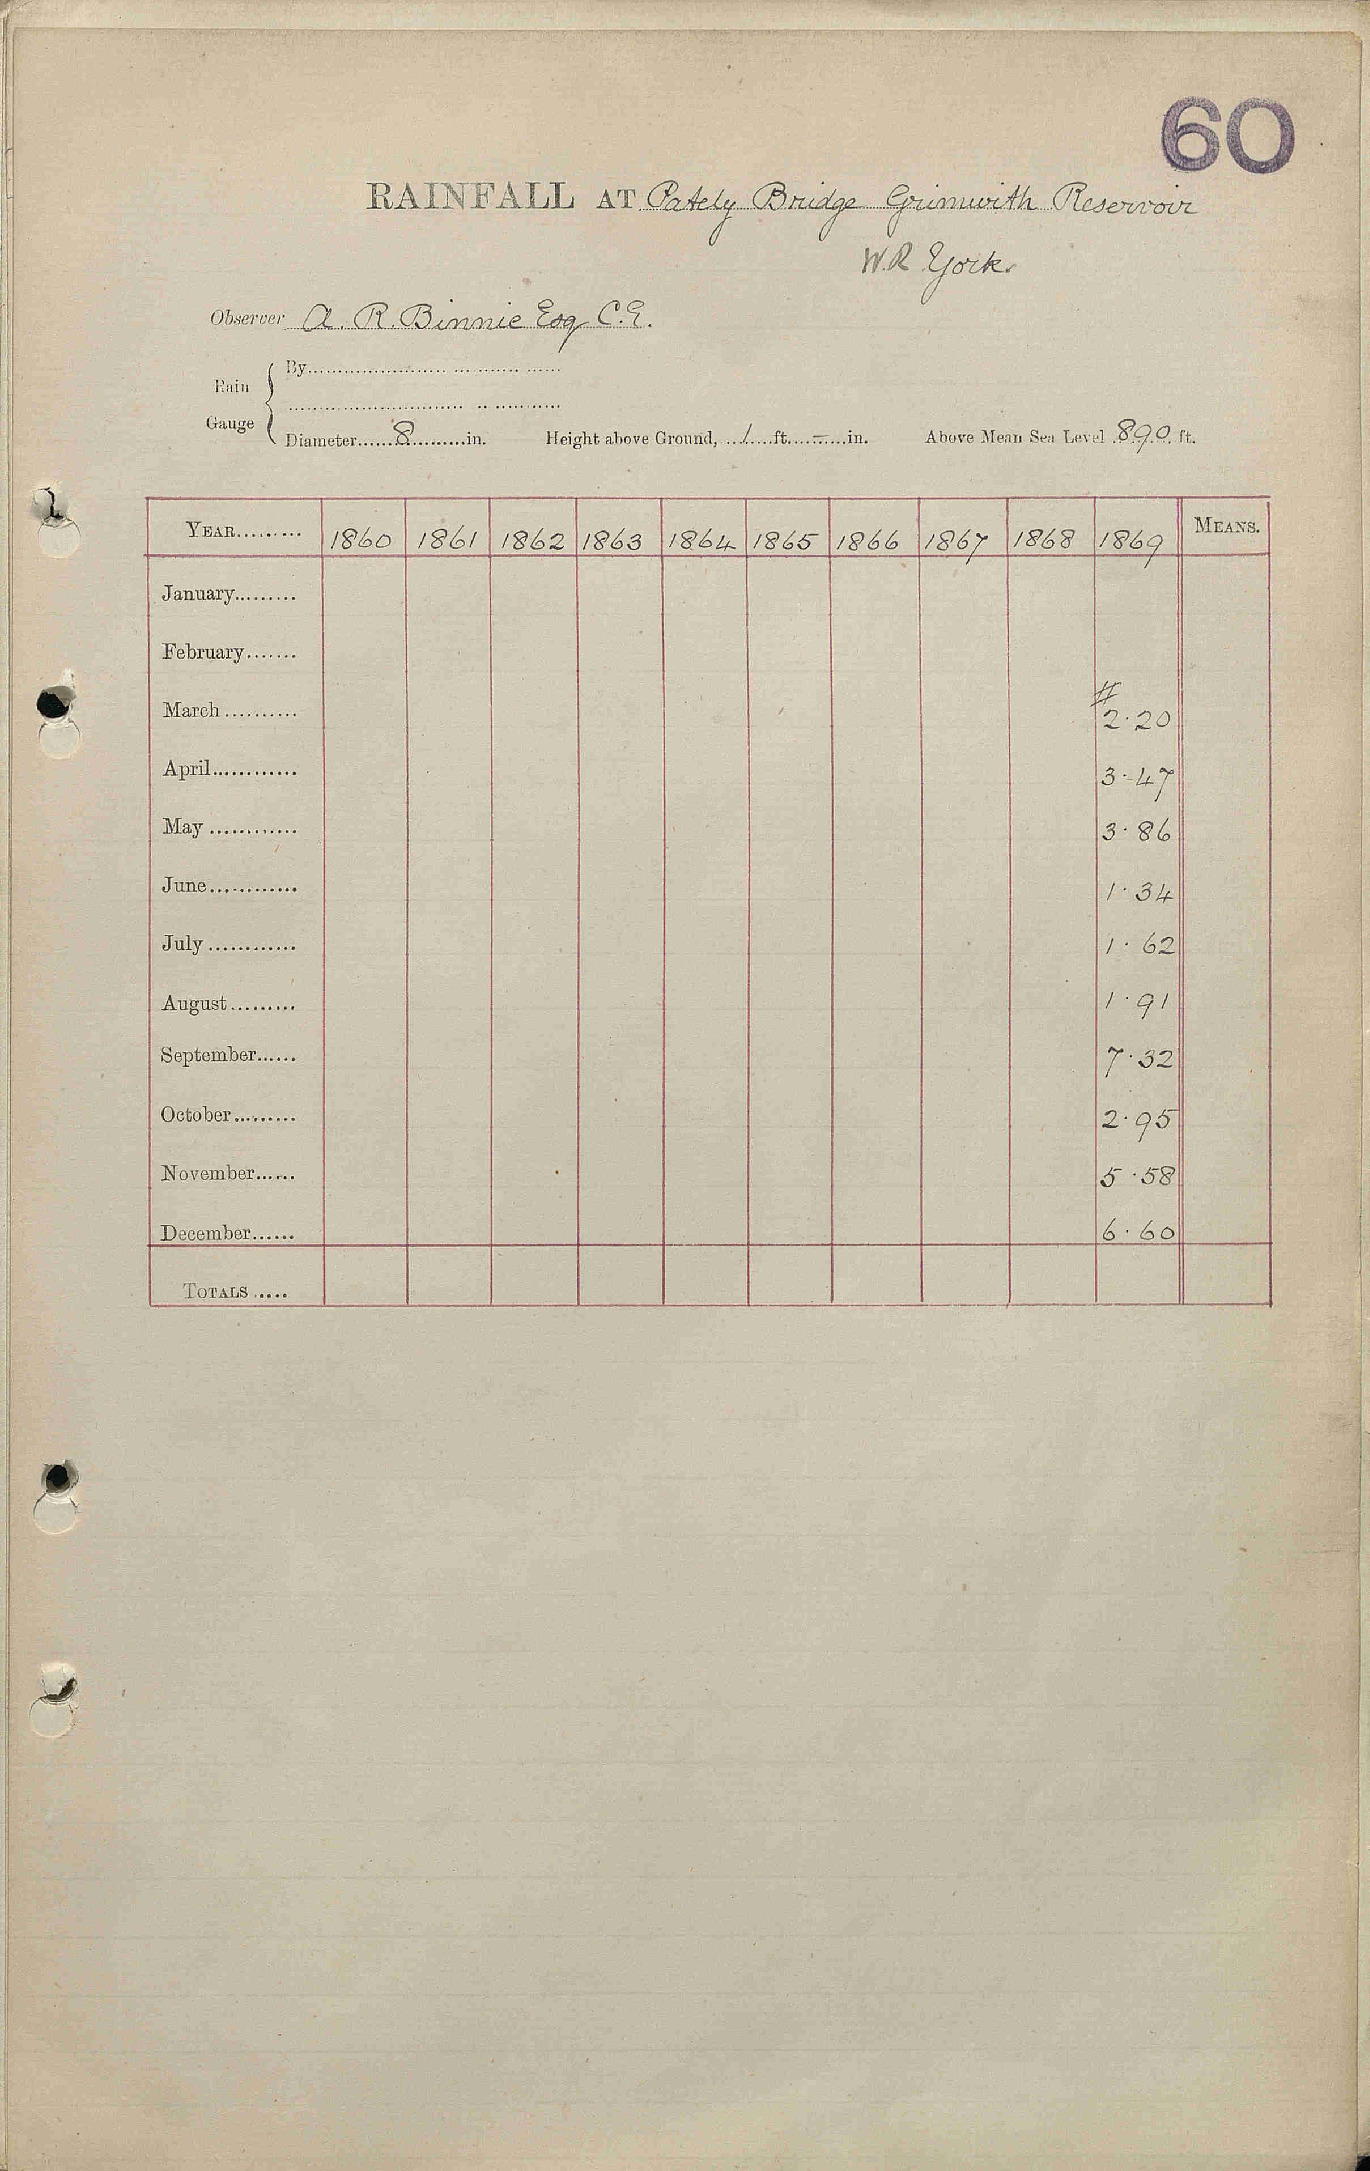 60
RAINFALL AT Pately Bridge Grimwith Reservoir
W.R York.
Observer A. R. Binnie Esq C.E.
Rain Gauge { By
Diameter 8 in. Height above Ground, 1 ft. – in. Above Mean Sea Level 890 ft.
YEAR 1860 1861 1862 1863 1864 1865 1866 1867 1868 1869 MEANS.
January
February
#
March 2.20
April 3.47
May 3.86
June 1.34
July 1.62
August 1.91
September 7.32
October 2.95
November 5.58
December 6.60
TOTALS